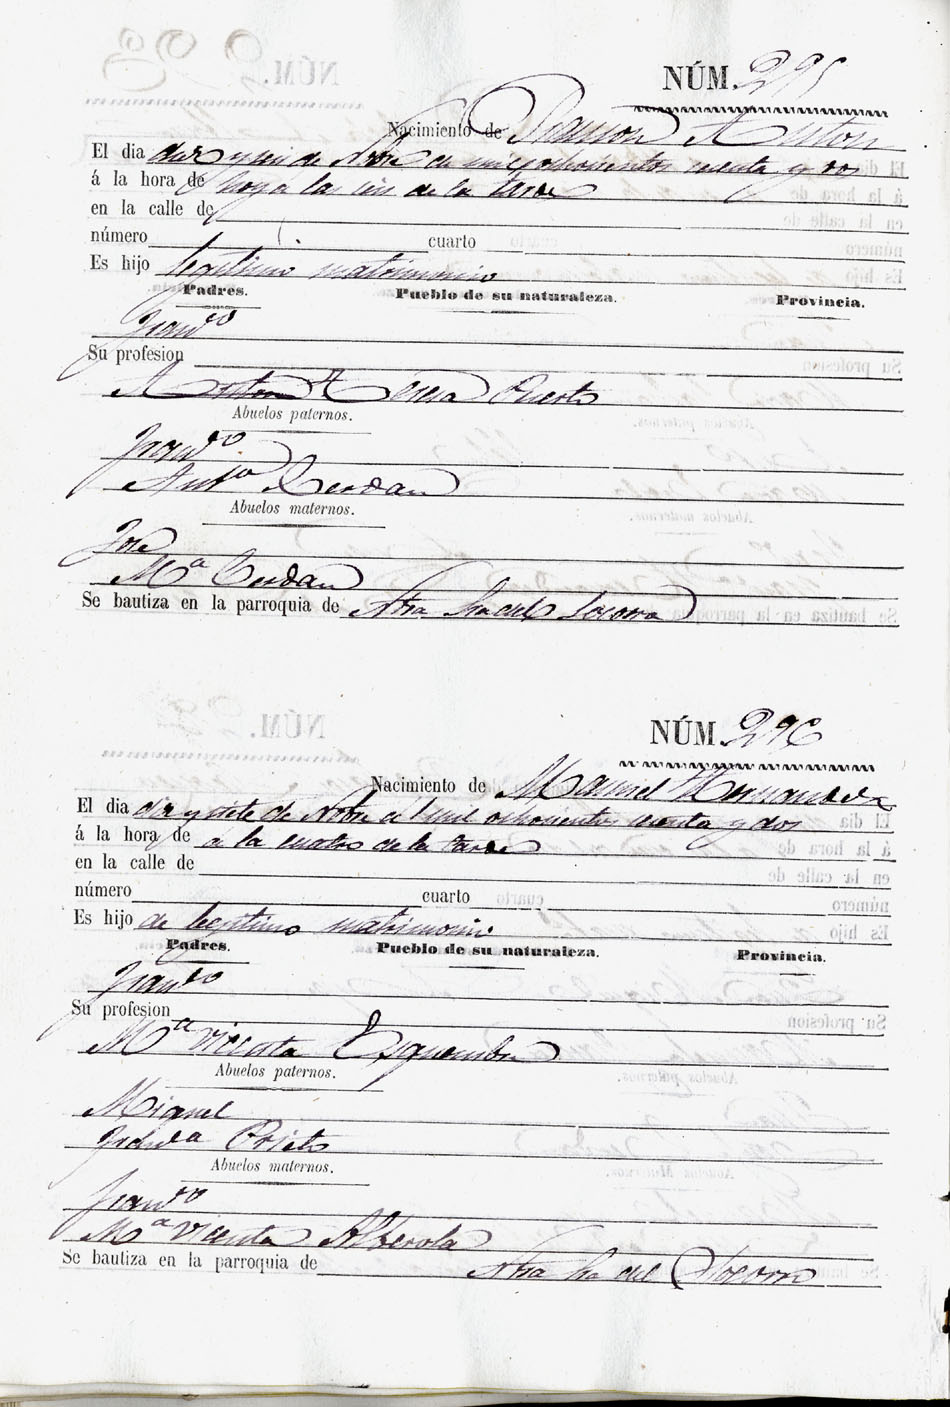 NÚM. 295
Nacimiento de Ramon Anton
El dia diez y seis de Nbre de mil ochocientos y dos
á la hora de a las de la tarde
en la calle de
número cuarto
Es hijo legitimo matrimonio
Padres. Pueblo de su naturaleza. Provincia.
Franco
Su profesion
Anton Teresa Puerto
Abuelos paternos.
Franco
Anta Cerdan
Abuelos maternos.
Jose
Ma Cerdan
Se bautiza en la parroquia de Ntra Sra del Socorro
NÚM. 296
Nacimiento de Manuel Hernandez
El dia diez y siete de Nbre de mil ochocientos y dos
á la hora de a la cuatro de la tarde
en la calle de
número cuarto
Es hijo de legitimo matrimonio
Padres. Pueblo de su naturaleza. Provincia.
Franco
Su profesion
Ma Vicenta Esquembre
Abuelos paternos.
Miguel
Prieto
Abuelos maternos.
Franco
Ma Vicenta Alberola
Se bautiza en la parroquia de Ntra Sra del Socorro